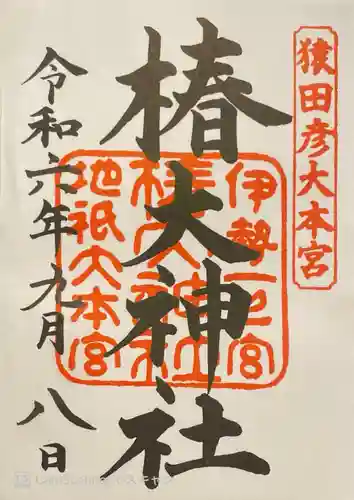 猿田彦大本宮
椿大神社
伊勢一之宮
椿大神社
地祇大本宮
令和六年九月八日